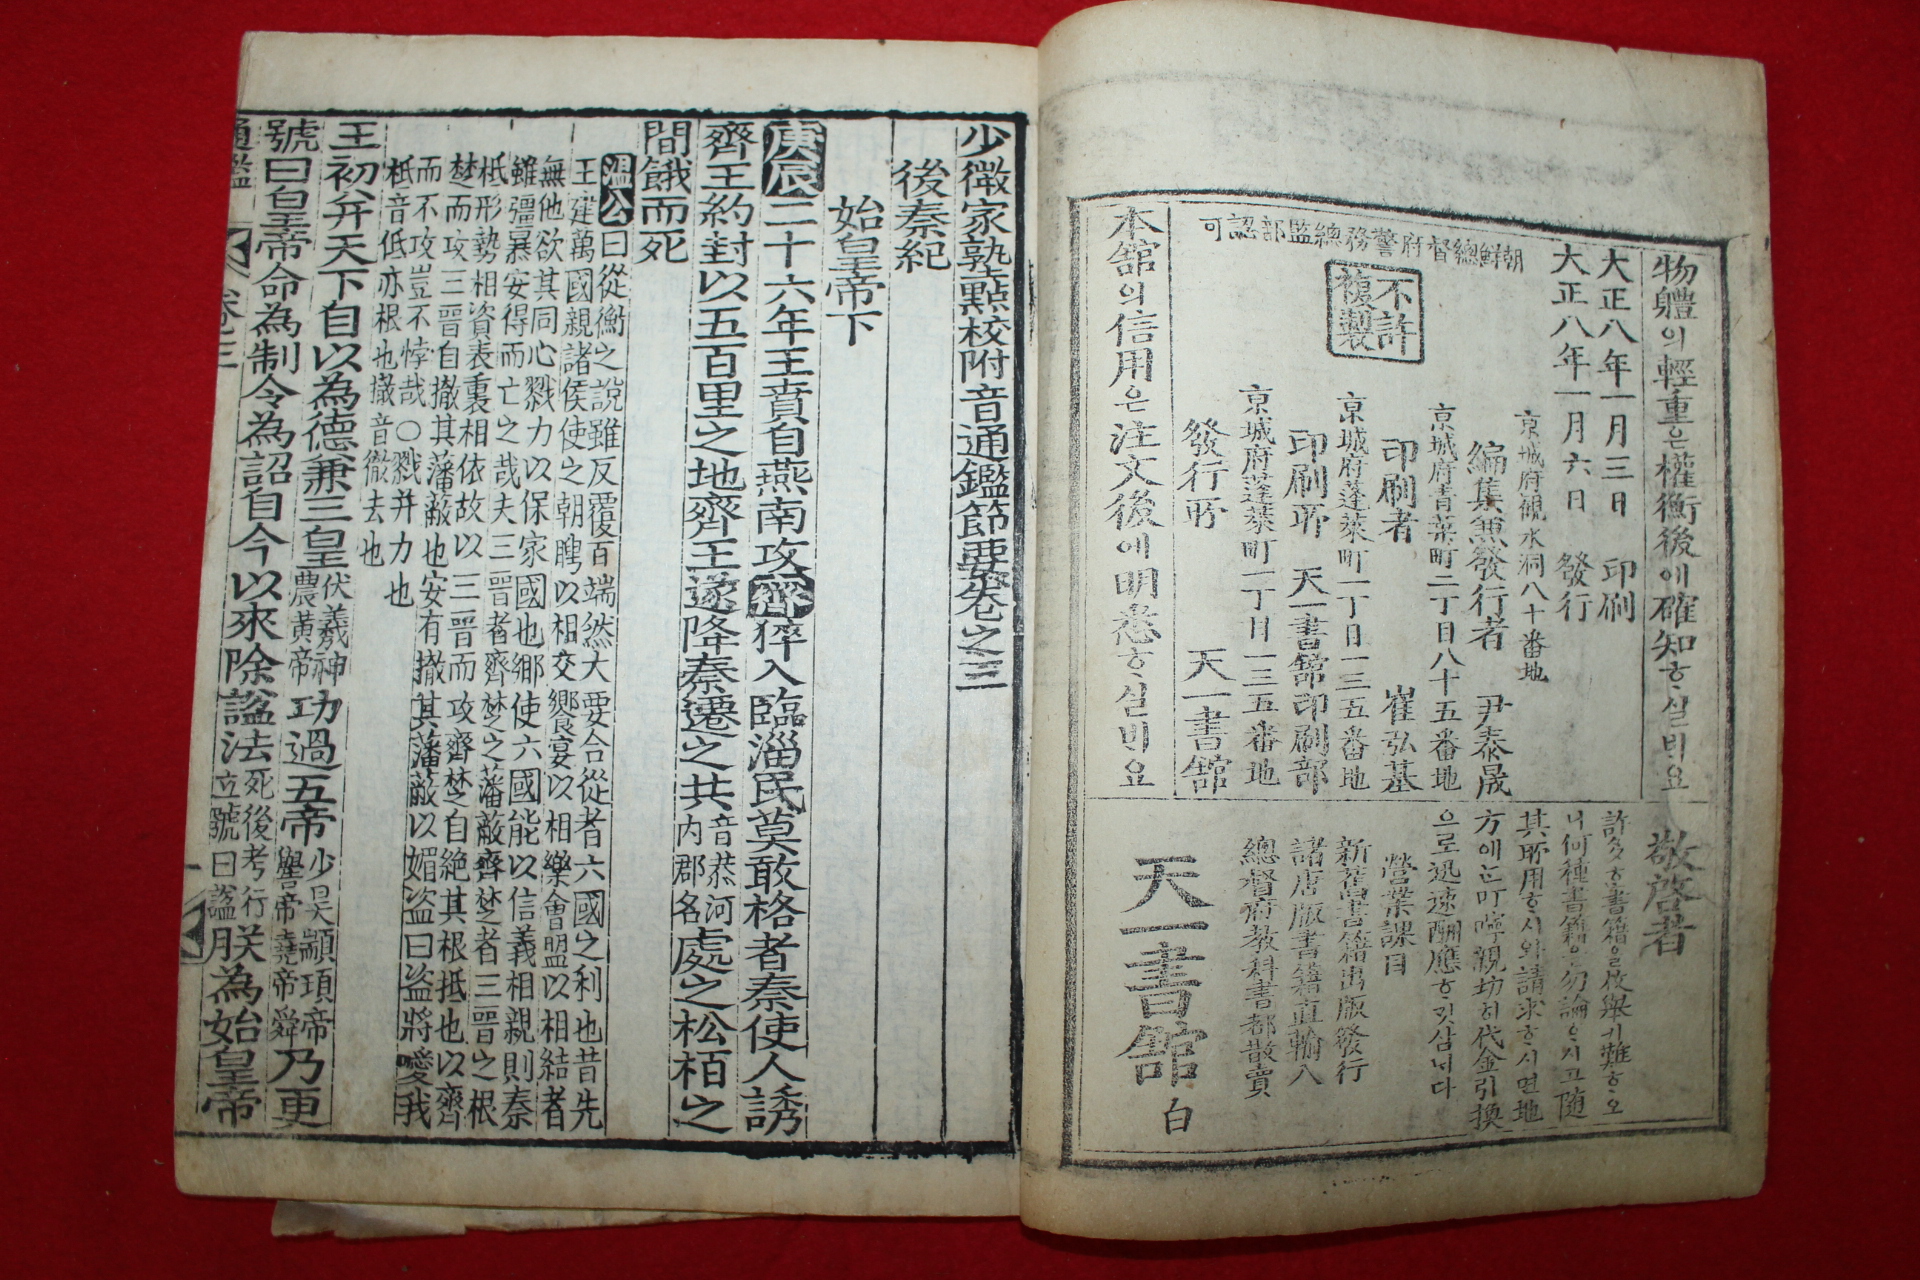 物軆의輕重은權衡後에確知ᄒᆞ실비요
大正八年一月三日 印刷
大正八年一月六日 發行
朝鮮總督府警務總監部認可
不許
複製
京城府觀水洞八十番地
編集兼發行者 尹泰晟
京城府青葉町二丁目八十五番地
印刷者 崔弘基
京城府蓬萊町一丁目一三五番地
印刷所 天一書舘印刷部
京城府蓬萊町一丁目一三五番地
發行所 天一書舘
本舘의信用은注文後에明悉ᄒᆞ실비요
敬啓者
許多ᄒᆞᆫ書籍을枚擧키難ᄒᆞ오
니何種書籍은勿論ᄒᆞ시고隨
其所用ᄒᆞ시와請求ᄒᆞ시면地
方에ᄂᆞᆫ叮嚀親切히代金引換
으로迅速酬應ᄒᆞ깃삽ᄂᆞ니다
營業課目
新舊書籍出版發行
諸唐版書籍直輸入
總督府敎科書都散賣
天一書舘 白
少微家塾點校附音通鑑節要卷之三
後秦紀
始皇帝下
庚辰二十六年王賁自燕南攻齊猝入臨淄民莫敢格者秦使人誘
齊王約封以五百里之地齊王遂降秦遷之共音恭河內郡名處之松栢之
間餓而死
溫公曰從衡之說雖反覆百端然大要合從者六國之利也昔先
王建萬國親諸侯使之朝聘以相交饗宴以相樂會盟以相結者
無他欲其同心戮力以保家國也鄉使六國能以信義相親則秦
雖彊暴安得而亡之哉夫三晉者齊楚之藩蔽齊楚者三晉之根
柢形勢相資表裏相依故以三晉而攻齊楚自絕其根柢也以齊
楚而攻三晉自撤其藩蔽也安有撤其藩蔽以媚盜曰盜將愛我
而不攻豈不悖哉〇戮并力也
柢音低亦根也撤音徹去也
王初并天下自以為德兼三皇伏羲神農黃帝功過五帝少昊顓頊帝嚳帝堯帝舜乃更
號曰皇帝命為制令為詔自今以來除諡法死後考行立號曰諡朕為始皇帝
通鑑 卷之三